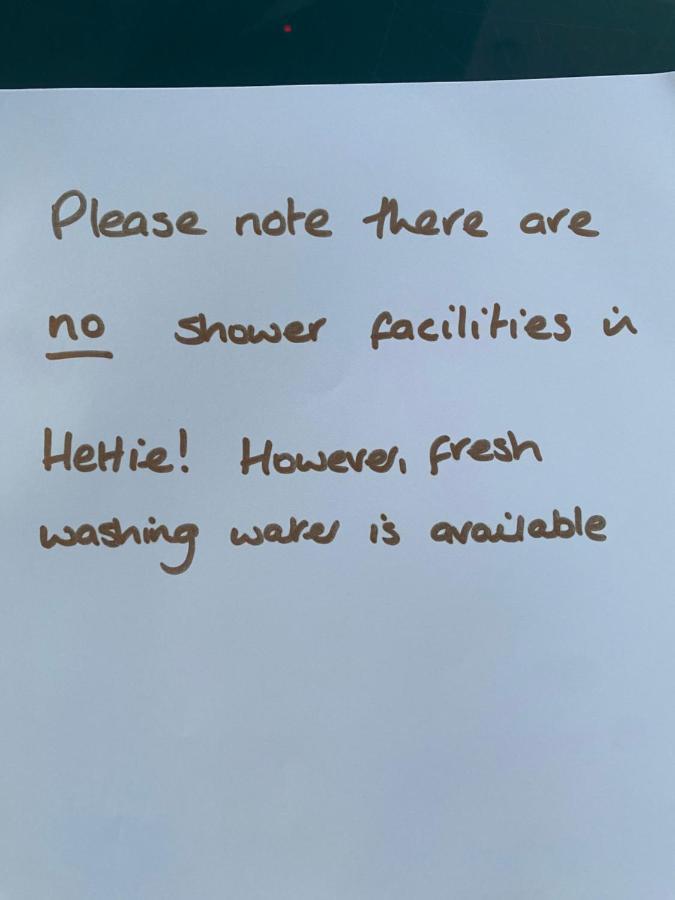 Please note there are
no shower facilities in
Hettie! However, fresh
washing water is available